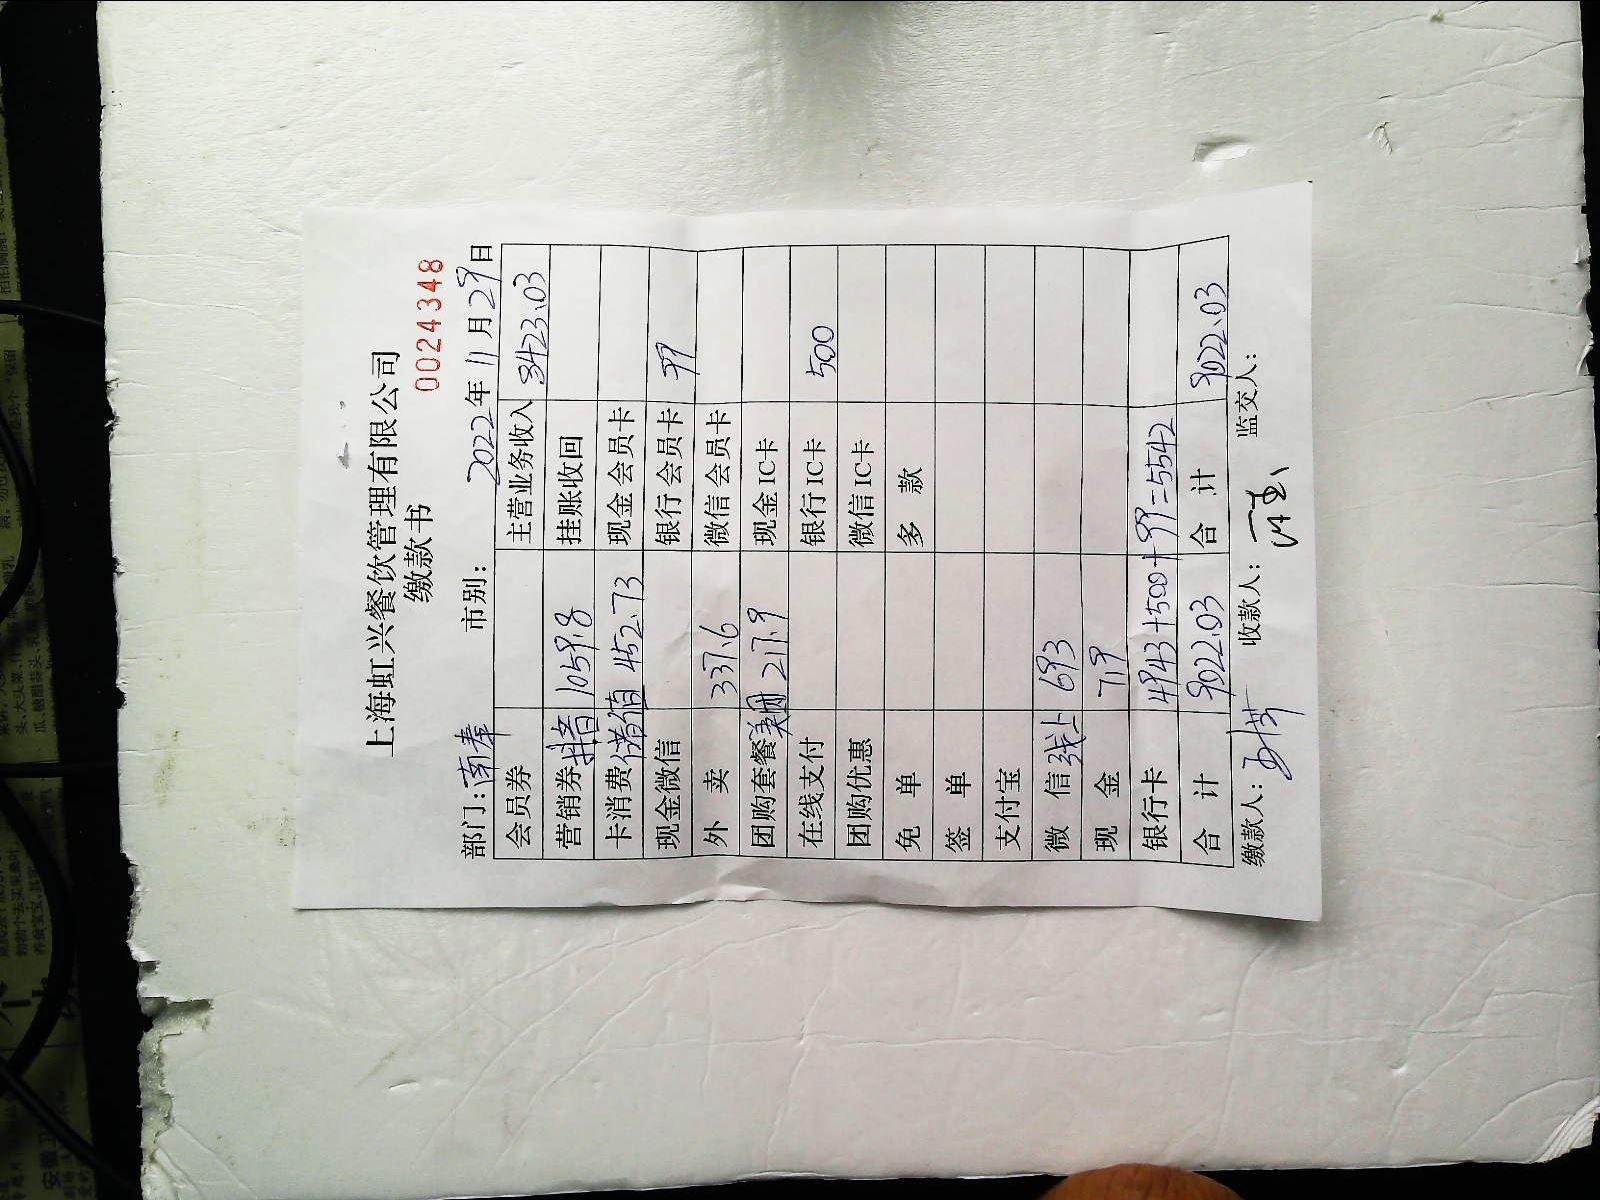 上海虹兴餐饮管理有限公司
缴款书
0024348
部门:南奉 市别: 2022年11月29日
会员券 主营业务收入 8423.03
营销券 抖音 1059.8 挂账收回
卡消费 储值 452.73 现金会员卡
现金微信 银行会员卡 99
外 卖 337.6 微信会员卡
团购套餐 美团 217.9 现金IC卡
在线支付 银行IC卡 500
团购优惠 微信IC卡
免 单 多 款
签 单
支付宝
微 信 线上 693
现 金 719
银行卡 4943+500+99=5542
合 计 9022.03 合 计 9022.03
缴款人: 收款人: 监交人: